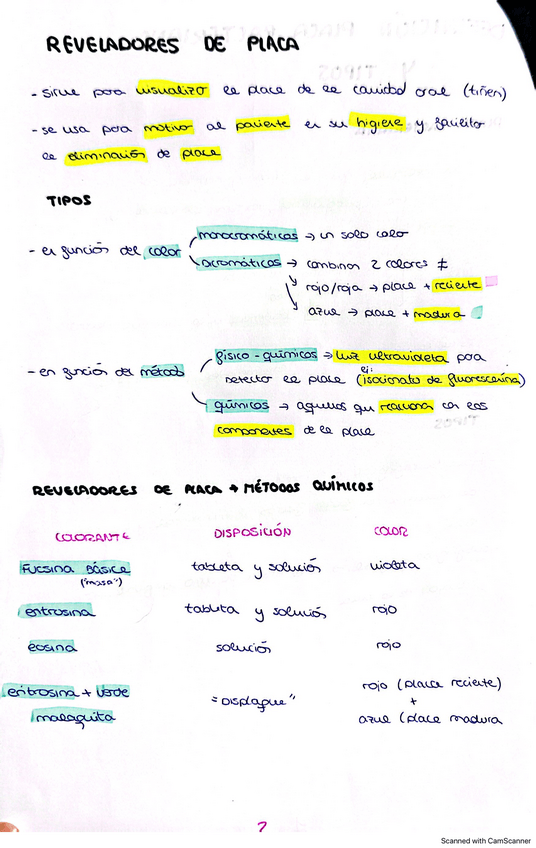 REVELADORES DE PLACA
- sirve para visualizar la placa de la cavidad oral (tiñen)
- se usa para motivar al paciente en su higiene y facilitar
la eliminación de placa
TIPOS
- en función del color
monocromáticos → un solo color
→ combinan 2 colores ≠
rojo/rosa → placa + reciente
azul → placa + madura
- en función del método
físico-químicos → luz ultravioleta para
detectar la placa (ej: isocianato de fluoresceína)
químicos → aquellos que reaccionan con los
componentes de la placa
REVELADORES DE PLACA → MÉTODOS QUÍMICOS
COLORANTE DISPOSICIÓN COLOR
FUCSINA BÁSICA tableta y solución violeta
eritrosina tableta y solución rojo
eosina solución rojo
eritrosina + verde malaquita "DISPLAQUE" rojo (placa reciente)
+
azul (placa madura
2
Scanned with CamScanner